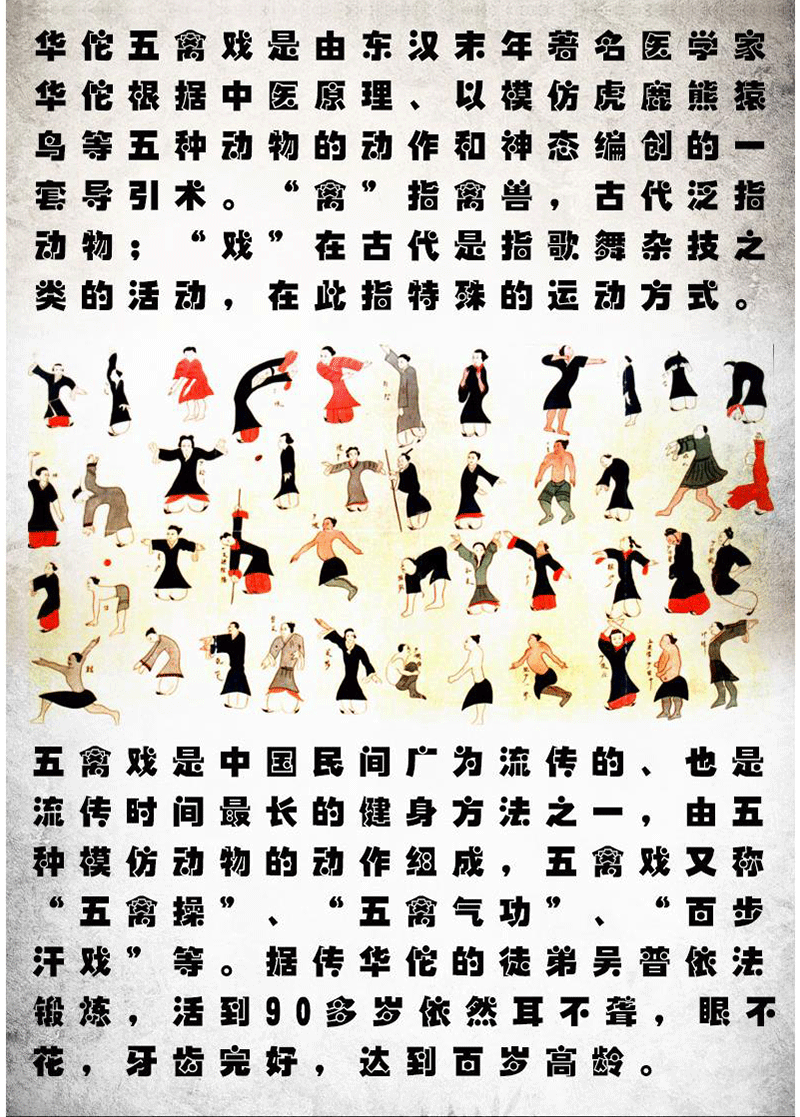 华佗五禽戏是由东汉末年著名医学家
华佗根据中医原理、以模仿虎鹿熊猿
鸟等五种动物的动作和神态编创的一
套导引术。“禽”指禽兽，古代泛指
动物；“戏”在古代是指歌舞杂技之
类的活动，在此指特殊的运动方式。
五禽戏是中国民间广为流传的、也是
流传时间最长的健身方法之一，由五
种模仿动物的动作组成，五禽戏又称
“五禽操”、“五禽气功”、“百步
汗戏”等。据传华佗的徒弟吴普依法
锻炼，活到90多岁依然耳不聋，眼不
花，牙齿完好，达到百岁高龄。